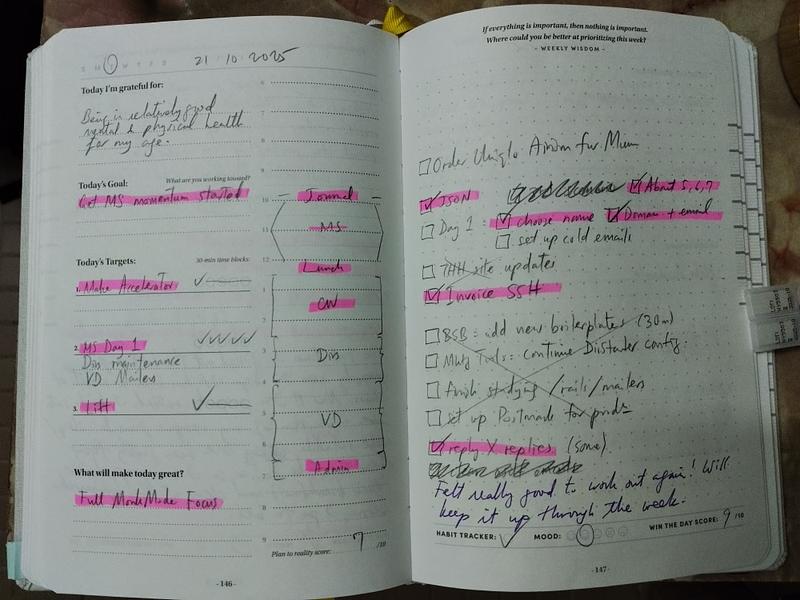 S M T W T F S 21 · 10 · 2025
Today I'm grateful for:
Being in relatively good
mental & physical health
for my age.
Today's Goal: What are you working toward?
Get MS momentum started
Today's Targets: 30-min time blocks:
1. Make Accelerator
2. MS Day 1
Dis maintenance
VD Mailers
3. Lift
What will make today great?
Full MonkMode Focus
6
7
8
9
10 — Journal —
11 MS
12
Lunch
1 CW
2
3 Dis
4
5 VD
6
7 Admin
8
9
Plan to reality score: 7 /10
- 146 -
If everything is important, then nothing is important.
Where could you be better at prioritizing this week?
- WEEKLY WISDOM -
Order Uniqlo Airism for Mum
JSON About 5, 6, 7
Day 1: choose name Domain + email
set up cold emails
THH site updates
Invoice SSH
BSB: add new boilerplates (30m)
MWJ Tools: continue config.
Avoh studying /rails/mailers
set up Postmark for prod
reply X replies (some)
Felt really good to work out again! Will
keep it up through the week.
HABIT TRACKER: MOOD: WIN THE DAY SCORE: 9 /10
- 147 -